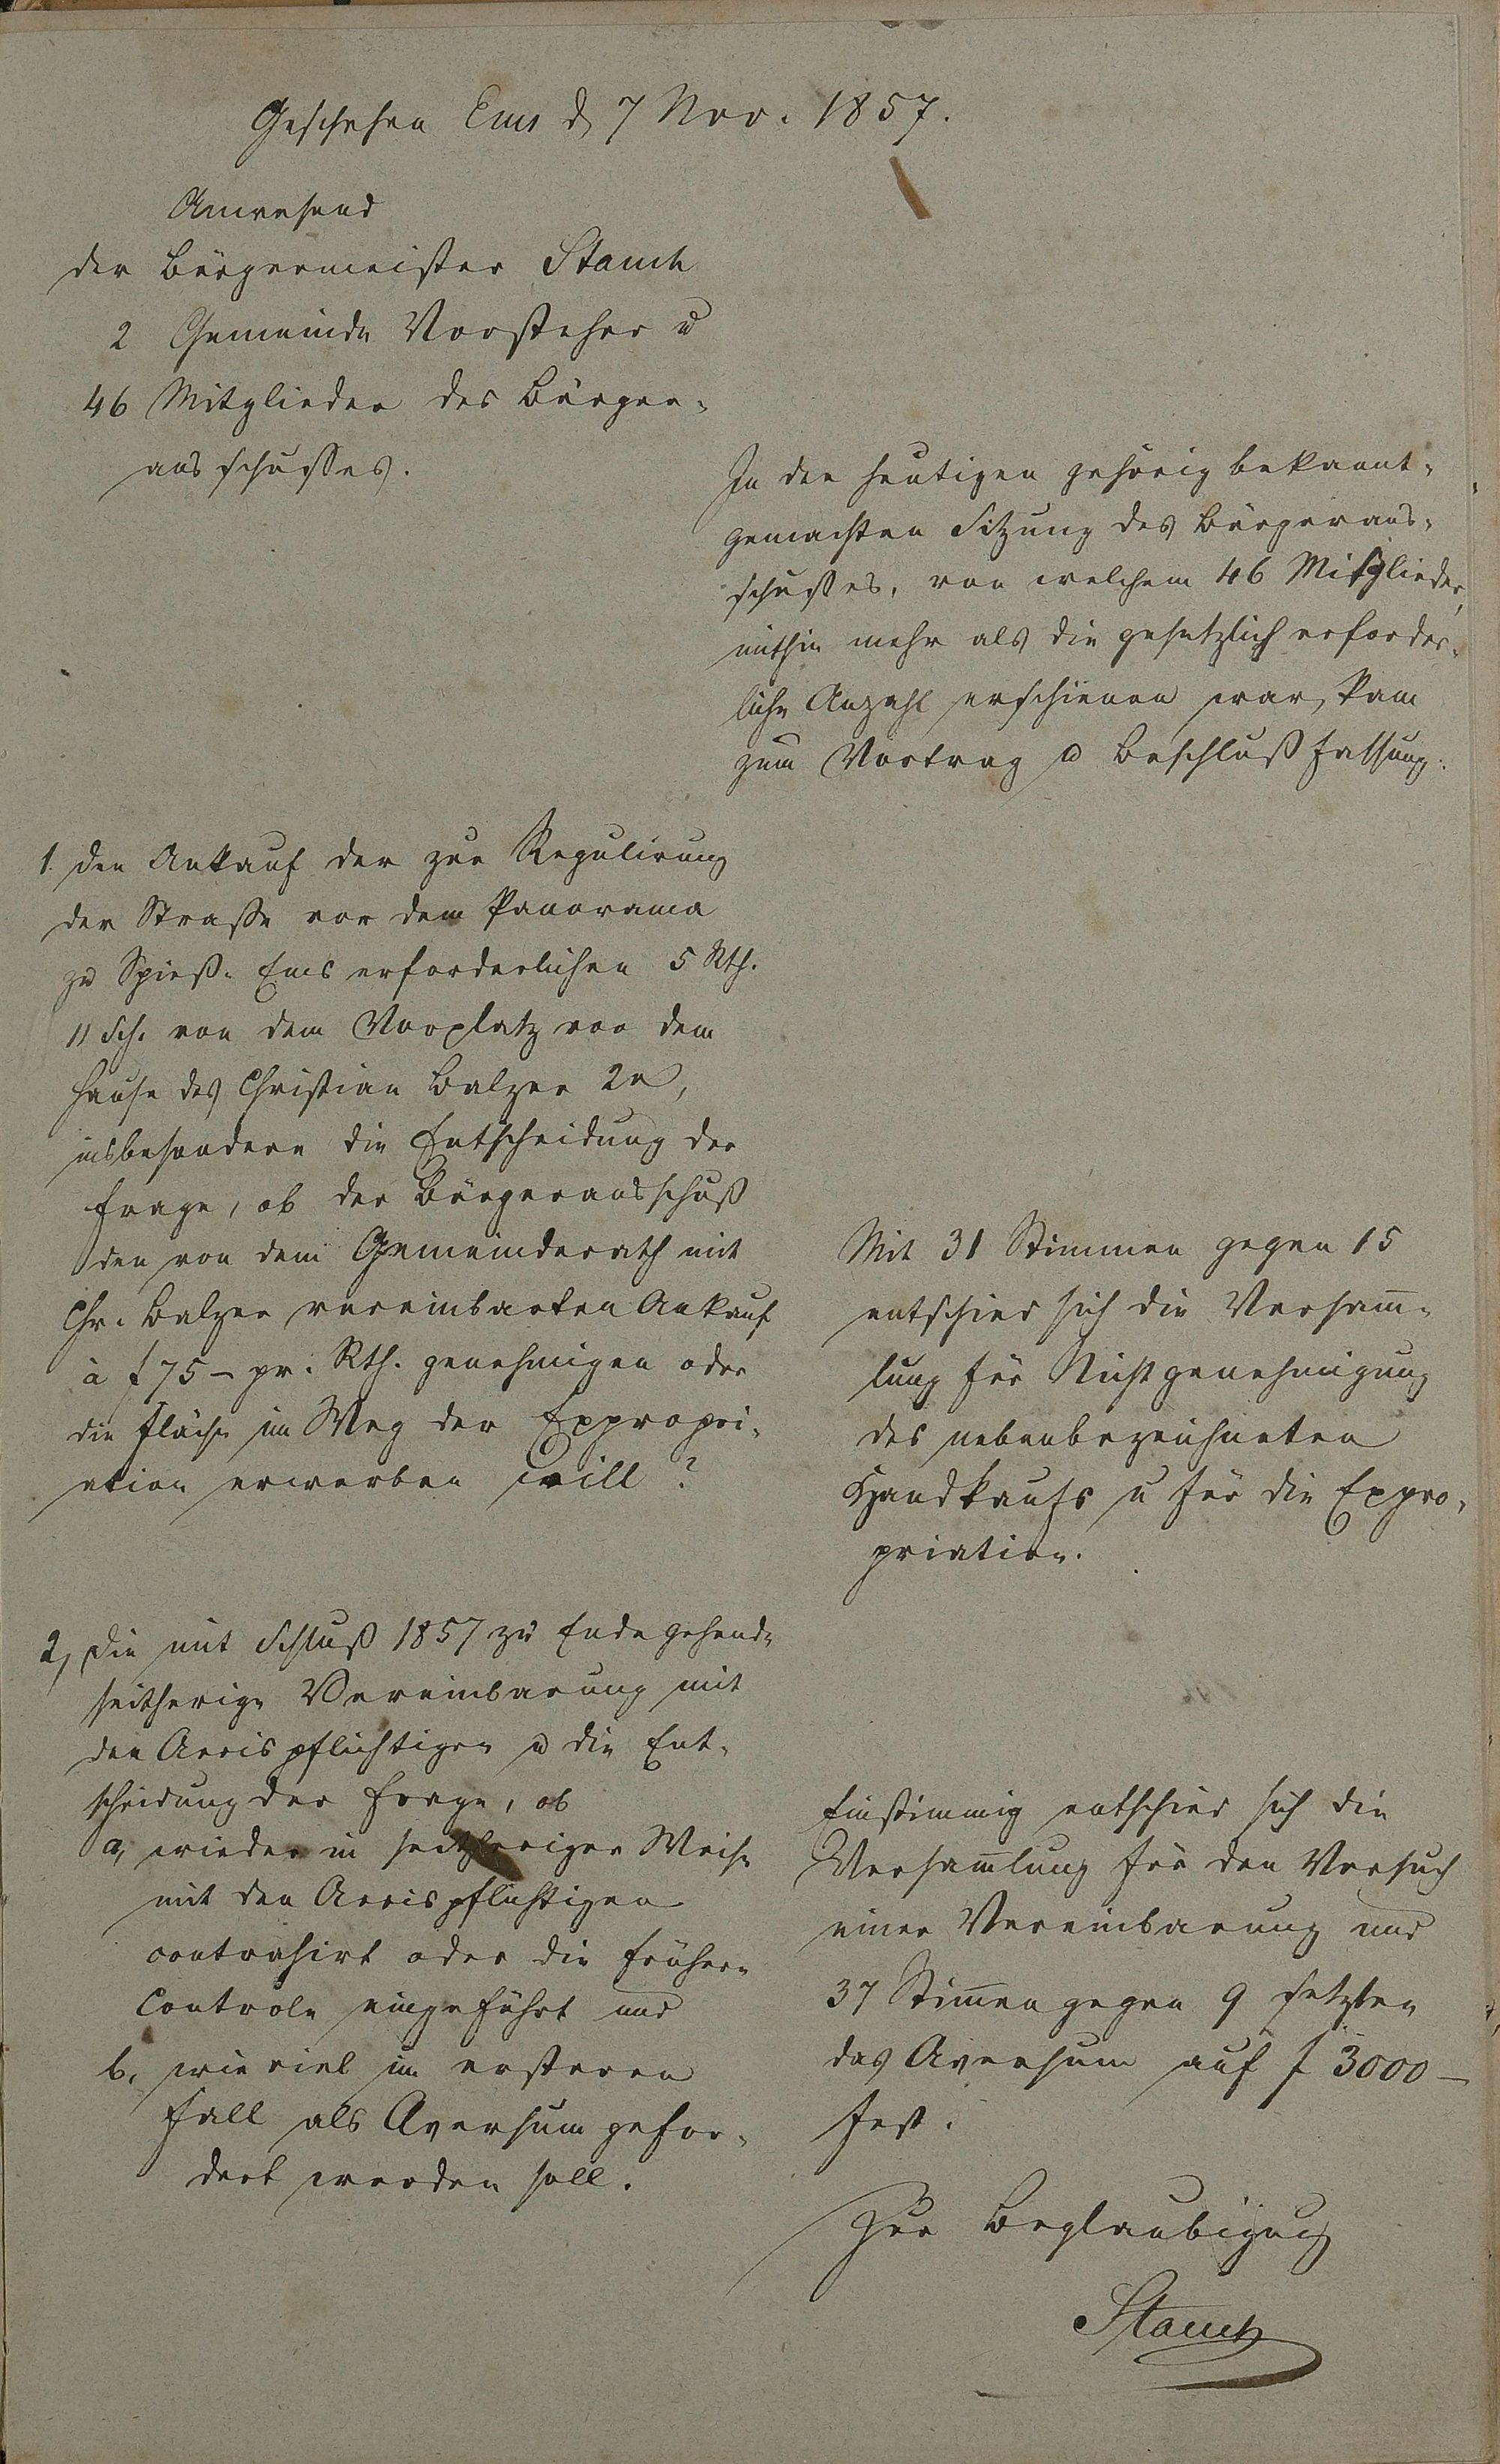 Geschehen Ems d 7 Nov. 1857.
Anwesend
der Bürgermeister Stauch
2 Gemeinde Vorsteher u
46 Mitglieder des Bürger-
ausschusses.
In der heutigen gehörig bekannt-
gemachten Sitzung des Bürgeraus-
schusses, von welchem 46 Mitglieder,
mithin mehr als die gesetzlich erforder-
liche Anzahl erschienen war, kam
zum Vortrag u Beschlußfassung:
1. Der Ankauf der zur Regulirung
der Straße vor dem Panorama
zu Spieß-Ems erforderlichen 5 Rth.
11 Sch. von dem Vorplatz vor dem
Hause des Christian Balzer 2r,
insbesondere die Entscheidung der
Frage, ob der Bürgerausschuß
den von dem Gemeinderath mit
Chr. Balzer vereinbarten Ankauf
à f 75 – pr. Rth. genehmigen oder
die Fläche im Weg der Expropri-
ation erwerben will?
Mit 31 Stimmen gegen 15
entschied sich die Versam̅-
lung für Nichtgenehmigung
des nebenbezeichneten
Handkaufs u für die Expro-
priation.
2, Die mit Schluß 1857 zu Ende gehende
seitherige Vereinbarung mit
den Accispflichtigen u die Ent-
scheidung der Frage, ob
a, wieder in seitheriger Weise
mit den Accispflichtigen
contrahirt oder die frühere
Controle eingeführt und
b, wie viel im ersteren
Fall als Aversum gefor-
dert werden soll.
Einstimmig entschied sich die
Versam̅lung für den Versuch
einer Vereinbarung und
37 Stim̅en gegen 9 setzten
das Aversum auf f 3000 –
fest.
Zur Beglaubigung
Stauch